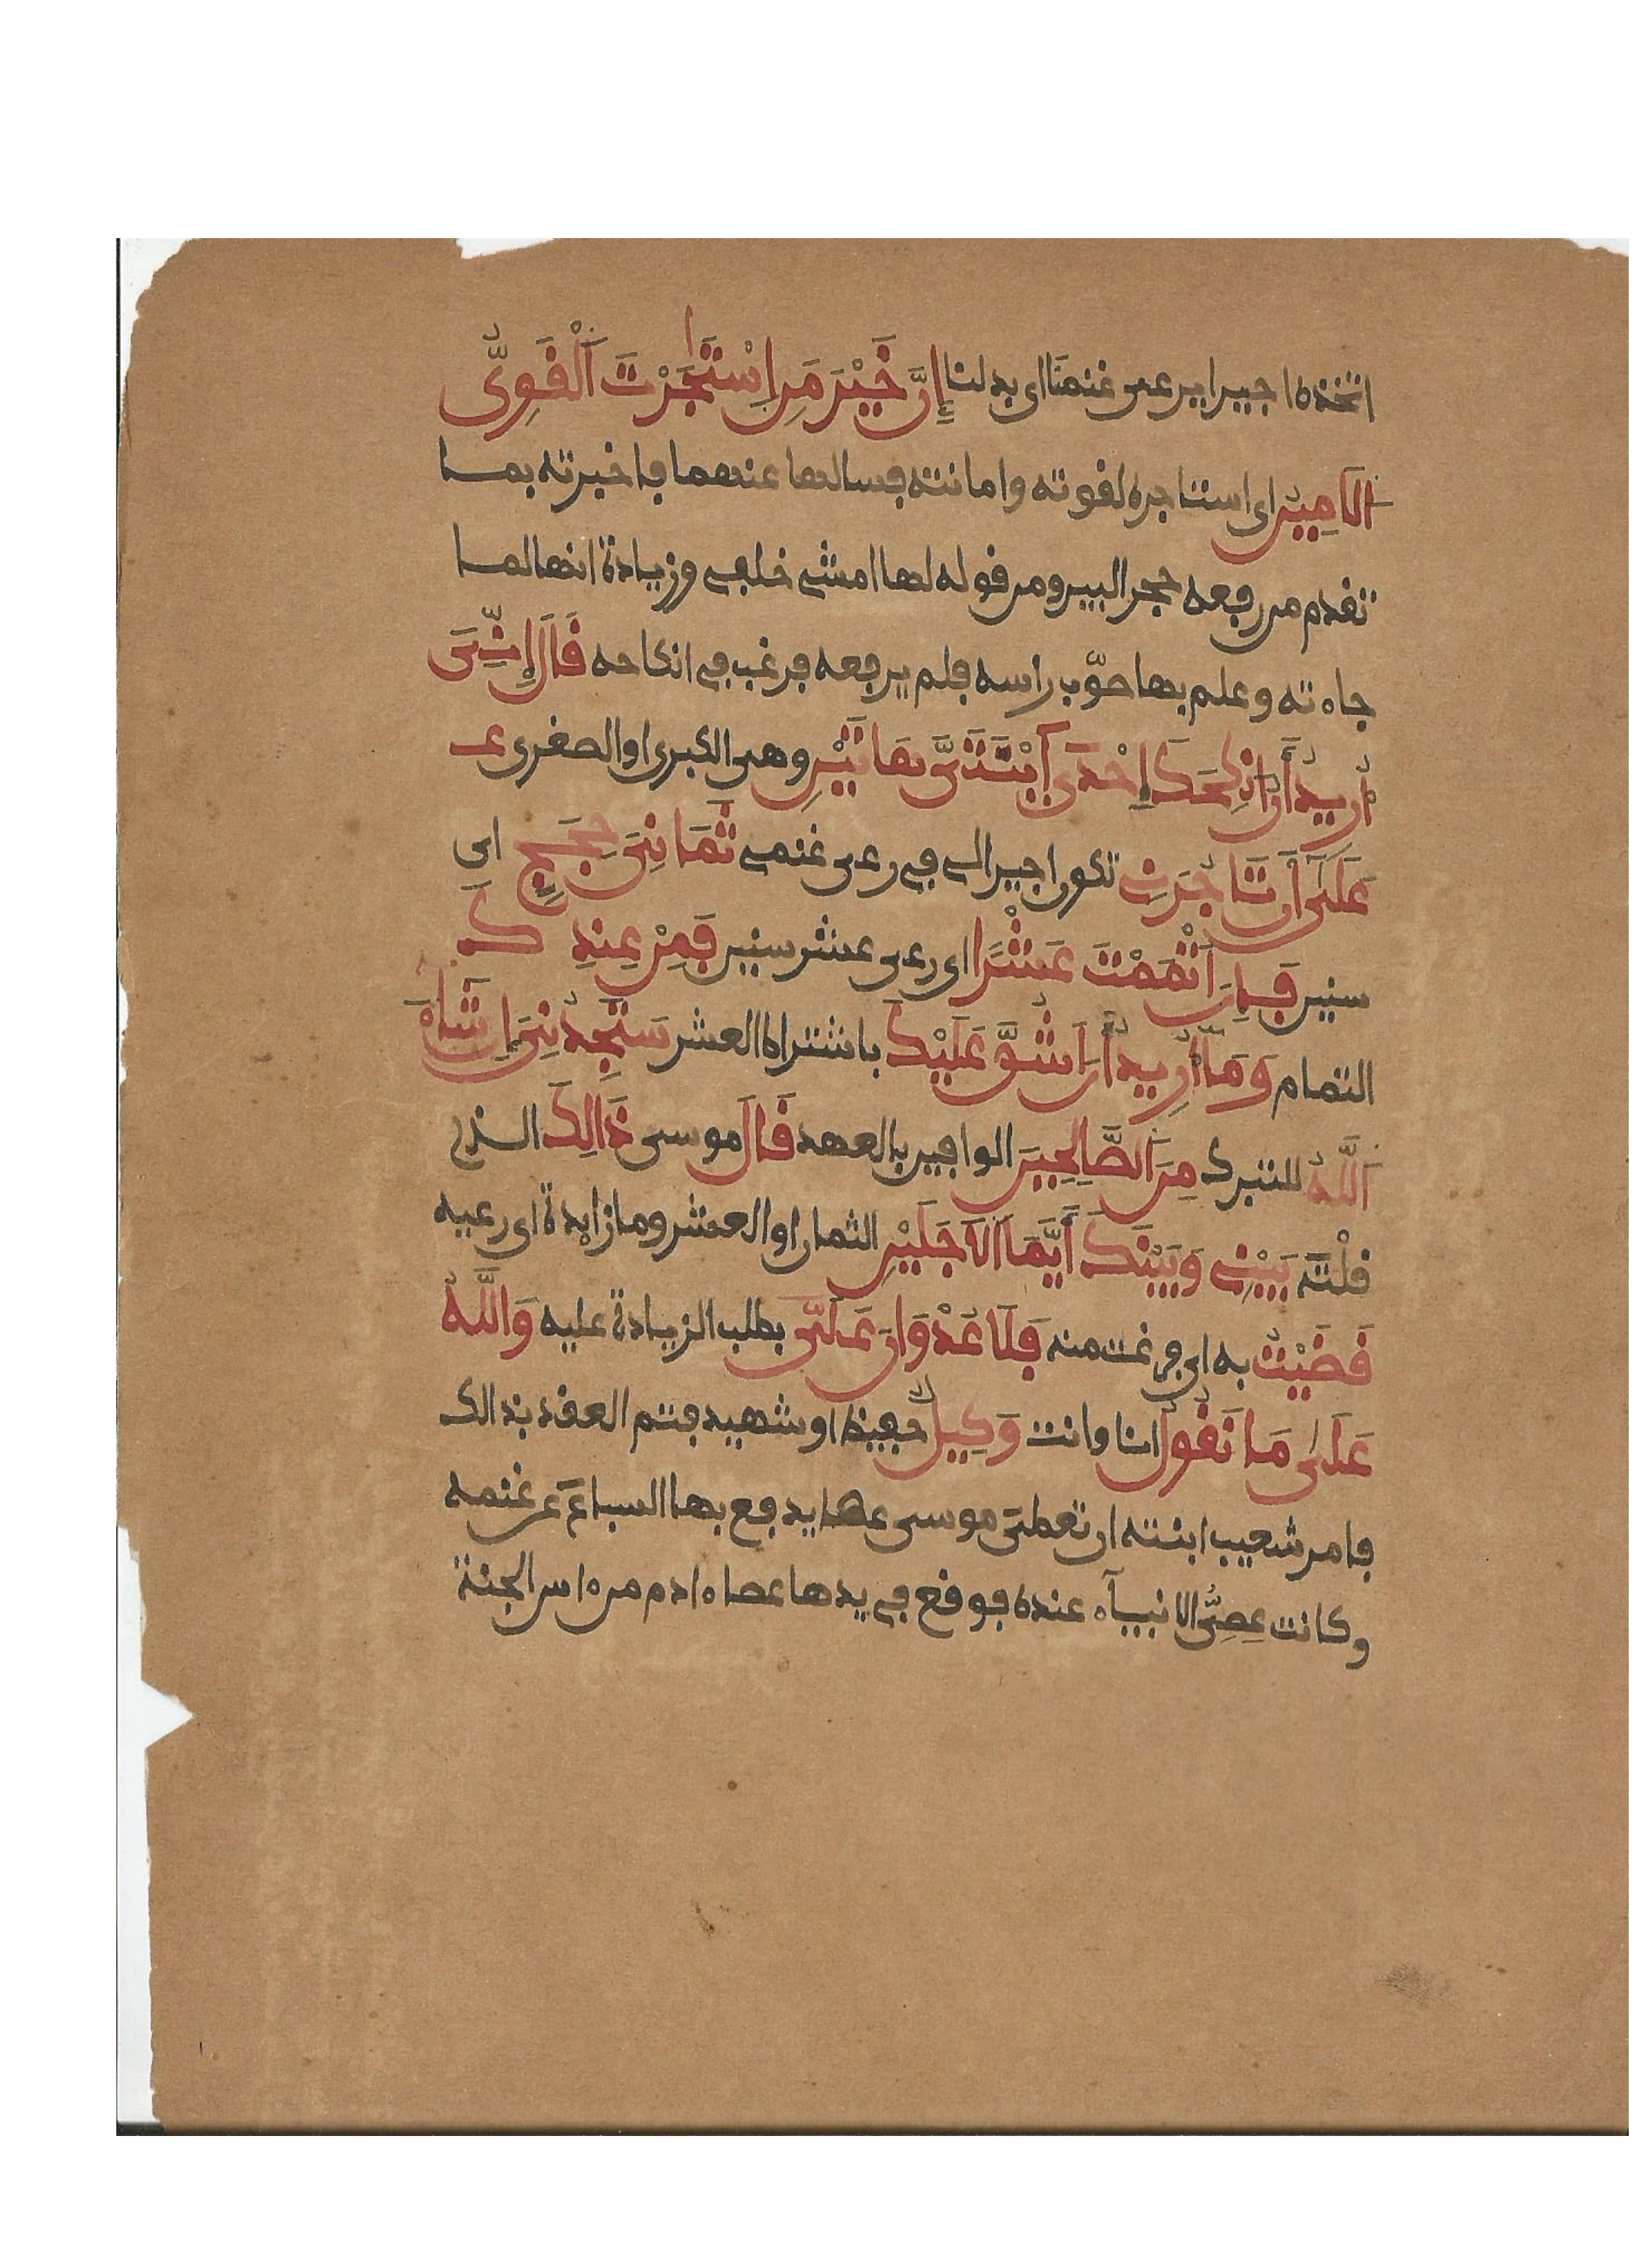 اتخذه اجيرا يرعى غنمنا اى بدلنا إِنَّ خَيْرَ مَنِ اِسْتَٰجَرْتَ اَلْقَوِىُّ
اَلَامِينُ اى استاجره لقوته وامانته فسالها عنهما فاخبرته بما
تقدم من رفعه حجر البير ومن قوله لها امشى خلفى وزيادة انها لما
جاءته وعلم بها صوّب راسه فلم يرفعه فرغب فى انكاحه قَالَ إِنِّىَ
أُرِيدُ أَنُ انكِحَكَ إِحْدَى اَبْنَتَىَّ هَاتَيْنِ وهى الكبرى او الصغرى
عَلَىٰ أَن تَاجُرَنِى تكون اجيرا لى فى رعى غنمى ثَمَانِىَ حِجَجٍ اى
سنين فَإِنَ اَتْمَمْتَ عَشْرًا اى رعى عشر سنين فَمِنْ عِندِكَ
التمام وَمَا أُرِيدُ أَنَ اشُقَّ عَلَيْكَ باشتراط العشر سَتَجِدُنِىَ إِن شَاءَ
اَللَّهُ للتبرك مِنَ اَلصَّالِحِينَ الوافين بالعهد قَالَ موسى ذَالِكَ الذى
قلْته بَيْنِى وَبَيْنَكَ أَيَّمَا اَلَاجَلَيْنِ الثمان او العشر وما زايدة اى رعيه
قَضَيْتُ به اى فرغت منه فَلَا عُدْوَانَ عَلَىَّ بطلب الزيادة عليه وَاللَّهُ
عَلَىٰ مَا نَقُولُ انا وانت وَكِيلٌ حفيظ او شهيد فتم العقد بذالك
فامر شعيب ابنته ان تعطى موسى عصا يدفع بها السباع عن غنمه
وكانت عِصِىُّ الانبيآء عنده فوقع فى يدها عصا ءادم من ءاس الجنة